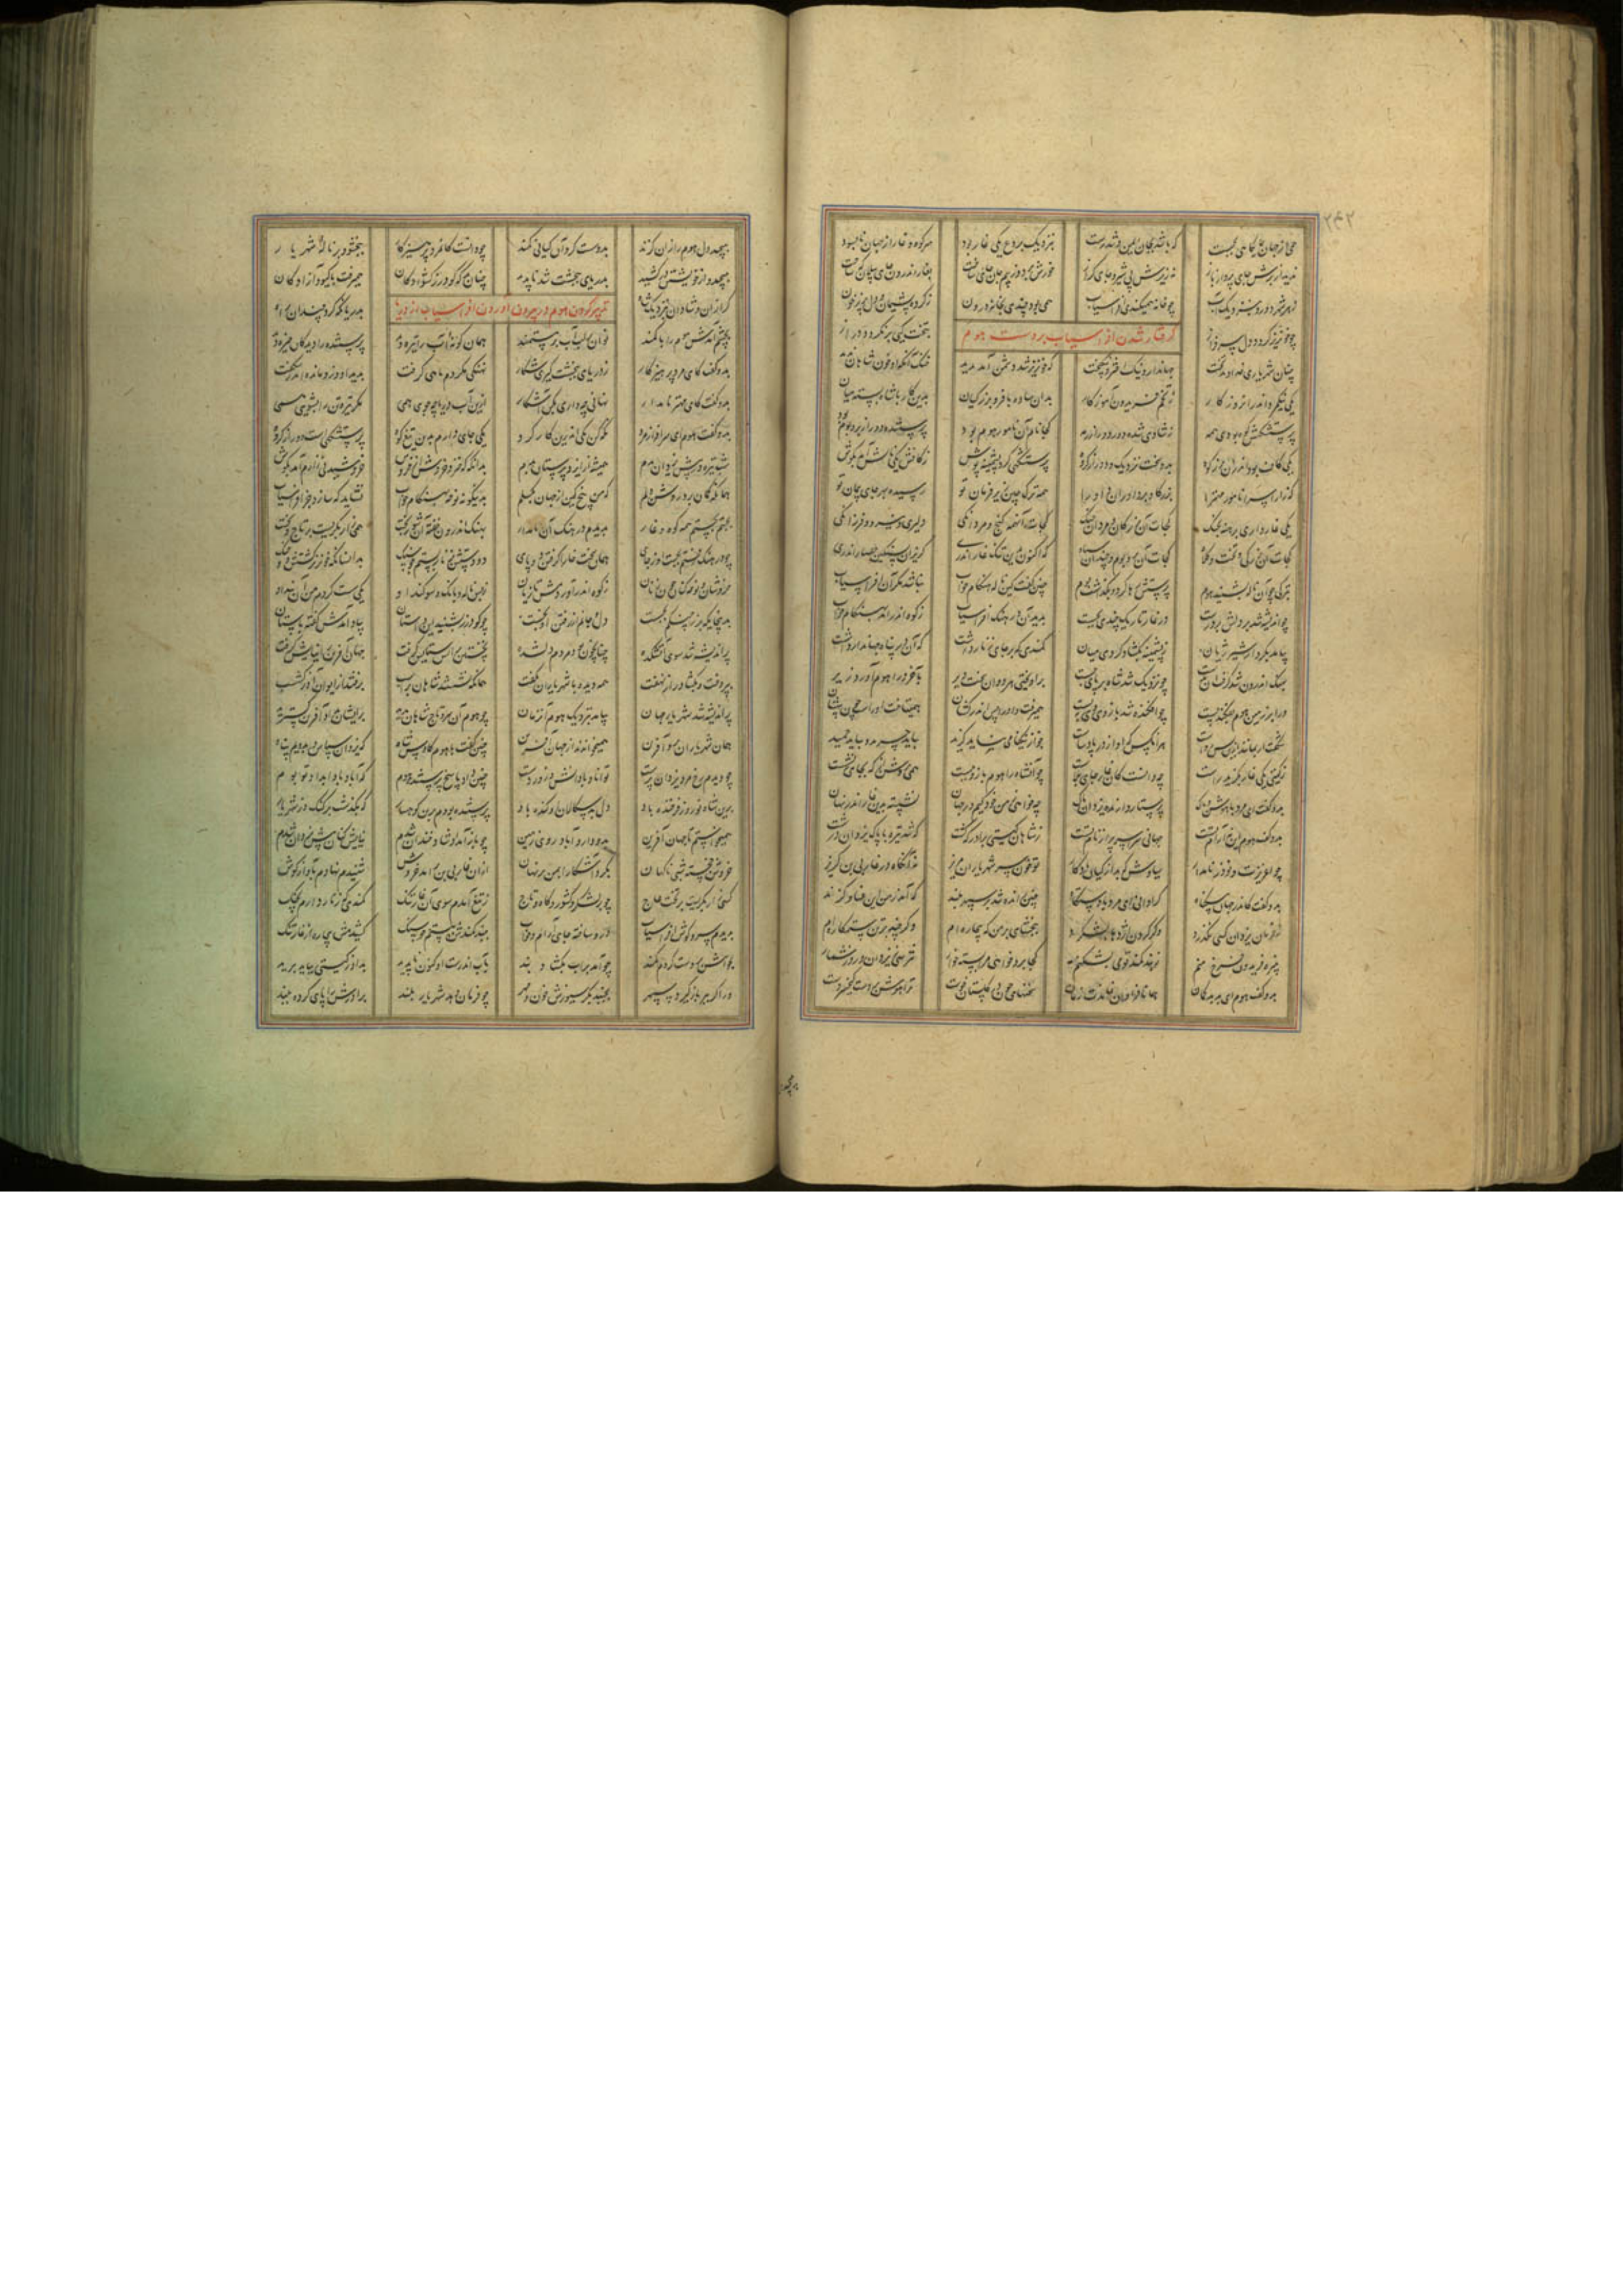 همی از جهان جایگاهی بجست که باشد بجان ایمن و تندرست بنزدیک بردع یکی غار بود سر کوه و غار از جهان نابسود
ندید از برش جای پرواز باز نه زیرش پی شیر و جای گراز خورش برد و از بیم جان جای ساخت بغار اندرون جای ساخت
ز هر شهر دور و بنزدیک آب چو خانه همیکند افراسیاب همی بود چندی بغار اندرون ز کرده پشیمان و دل پر ز خون
چو خونریز گردد دل سرفراز بتخت کیی بر نگردد دراز
گرفتار شدن افراسیاب بر دست هوم
چنان شهریاری خداوند تخت جهاندار و نیک اختر و نیکبخت که خونریز شد دشمن آمد پدید خنک آنکه او خون شاهان ندید
یکی نیکمرد اندر آن روزگار ز تخم فریدون آموزگار بدان با فر و برز کیان بدین کار با شاه بسته میان
پرستشگهش کوه بودی همه ز شادی شده دور و دور از رمه کجا نام آن نامور هوم بود پرستنده دور از بر و بوم بود
یکی کاف بود اندران برز کوه بدو سخت نزدیک و دور از گروه پرستشگهی کرد پشمینه پوش ز کافش یکی نالش آمد بگوش
که زارا سرا نامور مهترا بزرگان و بر داوران داورا همه ترک و چین زیر فرمان تو رسیده بهر جای پیمان تو
یکی غار داری بهره بچنگ کجات آن ز ترکان و مردان جنگ کجات آنهمه گنج و مردانگی دلیری و نیرو و فرزانگی
کجات آن بزرگی و تخت و کلاه کجات آن بر و بوم و چندان سپاه که اکنون بدین تنگ غار اندری گریزان بسنگین حصار اندری
بترکی چو آن ناله بشنید هوم پرستش رها کرد و بگذاشت بوم چنین گفت کین ناله هنگام خواب نباشد مگر آن افراسیاب
چو اندیشه شد بر دلش بر درست در غار تاریک چندی بجست بدید آن در هنگ افراسیاب ز کوه اندر آمد بهنگام خواب
بیامد بکردار شیر ژیان ز پشمینه بگشاد گردی میان کمندی که بر جای زنار داشت که آن در پناه جهاندار داشت
بهنگ اندرون شد گرفت آن بدست چو نزدیک شد شاه بر پای جست بر آویختی هر دوان سخت دیر بآخر ورا هوم آورد زیر
ورا بر زمین هوم بفگند پست چو افگنده شد بازوی او ببست همیرفت و او را پس اندر کشان همیتاخت او را چو بیهشان
شگفت ار بمانی بدین بس رواست هر آنکس که او از در پادشاست جز از نیکنامی نباید گزید بباید چرید و بباید چمید
ز گیتی یکی غار بگزید راست چه دانست کان غار جای بلاست چو آن شاه را هوم بازو ببست همی بردش از جای نشست
بدو گفت کای مرد با هوش و باک پرستار دارنده یزدان پاک چه خواهی ز من من کیم در جهان نشسته بدین غار اندر نهان
بدو گفت هوم این نه آرام تست جهانی سراسر پر از نام تست ز شاهان گیتی برادر که کشت که شد تیره با پاک یزدان درشت
چو اغریرث و نوذر نامدار سیاوش که بد از کیان یادگار تو خون سر شهریاران مریز نه اینگاه در غار بی بن گریز
بدو گفت کاندر جهان بیگناه کرا دانی ای مرد با دستگاه چنین راند بر سر سپهر بلند که آمد ز من این فساد و گزند
ز فرمان یزدان کسی نگذرد وگر گردن اژدها بشکرد ببخشای بر من که بیچاره ام وگر چند بر تن ستمکاره ام
نبیره فریدون فرخ منم ز بند کمندت همی بشکنم کجا برد خواهی مرا بسته خوار نترسی ز یزدان و روز شمار
بدو گفت هوم ای بد بدگمان همانا فراوان نماندت زمان سخنهای چون گلستان نوست ترا هوش بر دست کیخسروست
بپیچد دل هوم را زان گزند برو سست کرد آن کیانی کمند چو دانست کان مرد پرهیزگار ببخشود بر ناله شهریار
بپیچید و از خویشتن در کشید بدریای خنجست شد ناپدید چنان بد که گودرز کشوادگان همیرفت با گیو و آزادگان
گرازان و شادان بنزدیک شاه بدریا نگه کرد چندان براه
تدبیر کردن هوم در بیرون آوردن افراسیاب از دریا
بچشم آمدش هوم را با کمند نوان بر لب آب بر مستمند همان گونه آب را تیره دید پرستنده را دیدگان خیره دید
بدو گفت کای مرد پرهیزگار ز دریای خنجست گیری شکار نهنگی مگر دم ماهی گرفت بدید او و زو مانده اندر شگفت
بدو گفت کای مهتر نامدار نهانی چه داری بکن آشکار ازین آب دریا چه جویی همی مگر تیره تن را بشویی همی
بدو گفت هوم ای سرافراز مرد نگه کن یکی اندرین کارکرد یکی جای دارم برین تیغ کوه پرستشگهی است دور از گروه
شب تیره در پیش یزدان بدم همیشه ز یزدان پرستان بدم بدانگه که خیزد ز مرغان خروش خروشیدنی زارم آمد بگوش
همانگه گمان برد روشن دلم که من بیخ کین از جهان بگسلم بدینگونه نوحه بهنگام خواب نشاید که سازد جز افراسیاب
بجستم همه کوه و غار بدیدم در هنگ آن نامدار بهنگ اندرون خفته آشفته بخت همی زار بگریست بر تاج و تخت
چو در هنگ رفتم بجست او ز جای همان سخت خارا گرفته بپای دو دستش بزنار بستم چو سنگ بدانسان که خونریز گشتش دو چنگ
خروشان و نوحه کنان چون زنان ز کوه اندر آوردمش تازیان ز بس ناله و بانگ و سوگند او یکی سست کردم من آن بند او
بدین جایگه بر ز چنگم بجست دل و جانم از رفتن او بخست چو گودرز بشنید این داستان بیاد آمدش گفته باستان
پر اندیشه شد سوی آتشکده چنانچون بود مردم دلشده نخستین بر آتش ستایش گرفت جهان آفرین را نیایش گرفت
بپردخت و بگشاد راز از نهفت همه دیده با شهریاران بگفت همانگه نشستند شاهان بر اسب برفتند از ایوان آذرگشسب
پر اندیشه شد شهریار جهان بیامد بنزدیک هوم آنزمان چو هوم آن سر و تاج شاهان بدید بر ایشان بر آفرین گسترید
همان شهریاران برو آفرین همیخواندند از جهان آفرین چنین گفت با هوم کاوس شاه که یزدان سپاس و بدویم پناه
چو دیدم رخ مرد یزدان پرست توانا و با دانش و زور دست چنین داد پاسخ پرستنده هوم که آباد بادا بداد تو بوم
برین شاه نوروز فرخنده باد دل بدسگالان او کنده باد پرستنده بودم برین کوهسار که بگذشت بر گنگ دز شهریار
همیخواستم تا جهان آفرین بدو دارد آباد روی زمین چو باز آمد او شاد و خندان شدم نیایش کنان پیش یزدان شدم
خروش خجسته شبی ناگهان بکرد آشکارا بمن بر نهان ازان غار بی بن بر آمد خروش شنیدم نهادم بآواز گوش
کسی زار بگریست بر تخت عاج چه بر لشکر و کشور و گاه و تاج ز تیغ آمدم سوی آن غار تنگ کمندی که زنار دارم بچنگ
بدیدم سر و گوش افراسیاب درو ساخته جای آرام و خواب ببند کمندش ببستم چو سنگ کشیدمش بیچاره از غار تنگ
بخواهش بدو سست کردم کمند چو آمد بر آب بگشاد بند بآب اندرست او کنون ناپدید پی او ز گیتی بباید برید
ورا گر باز گیرد سپهر بجنبد بگرسیوزش خون و مهر چو فرمان دهد شهریار بلند برادرش را پای کرده ببند